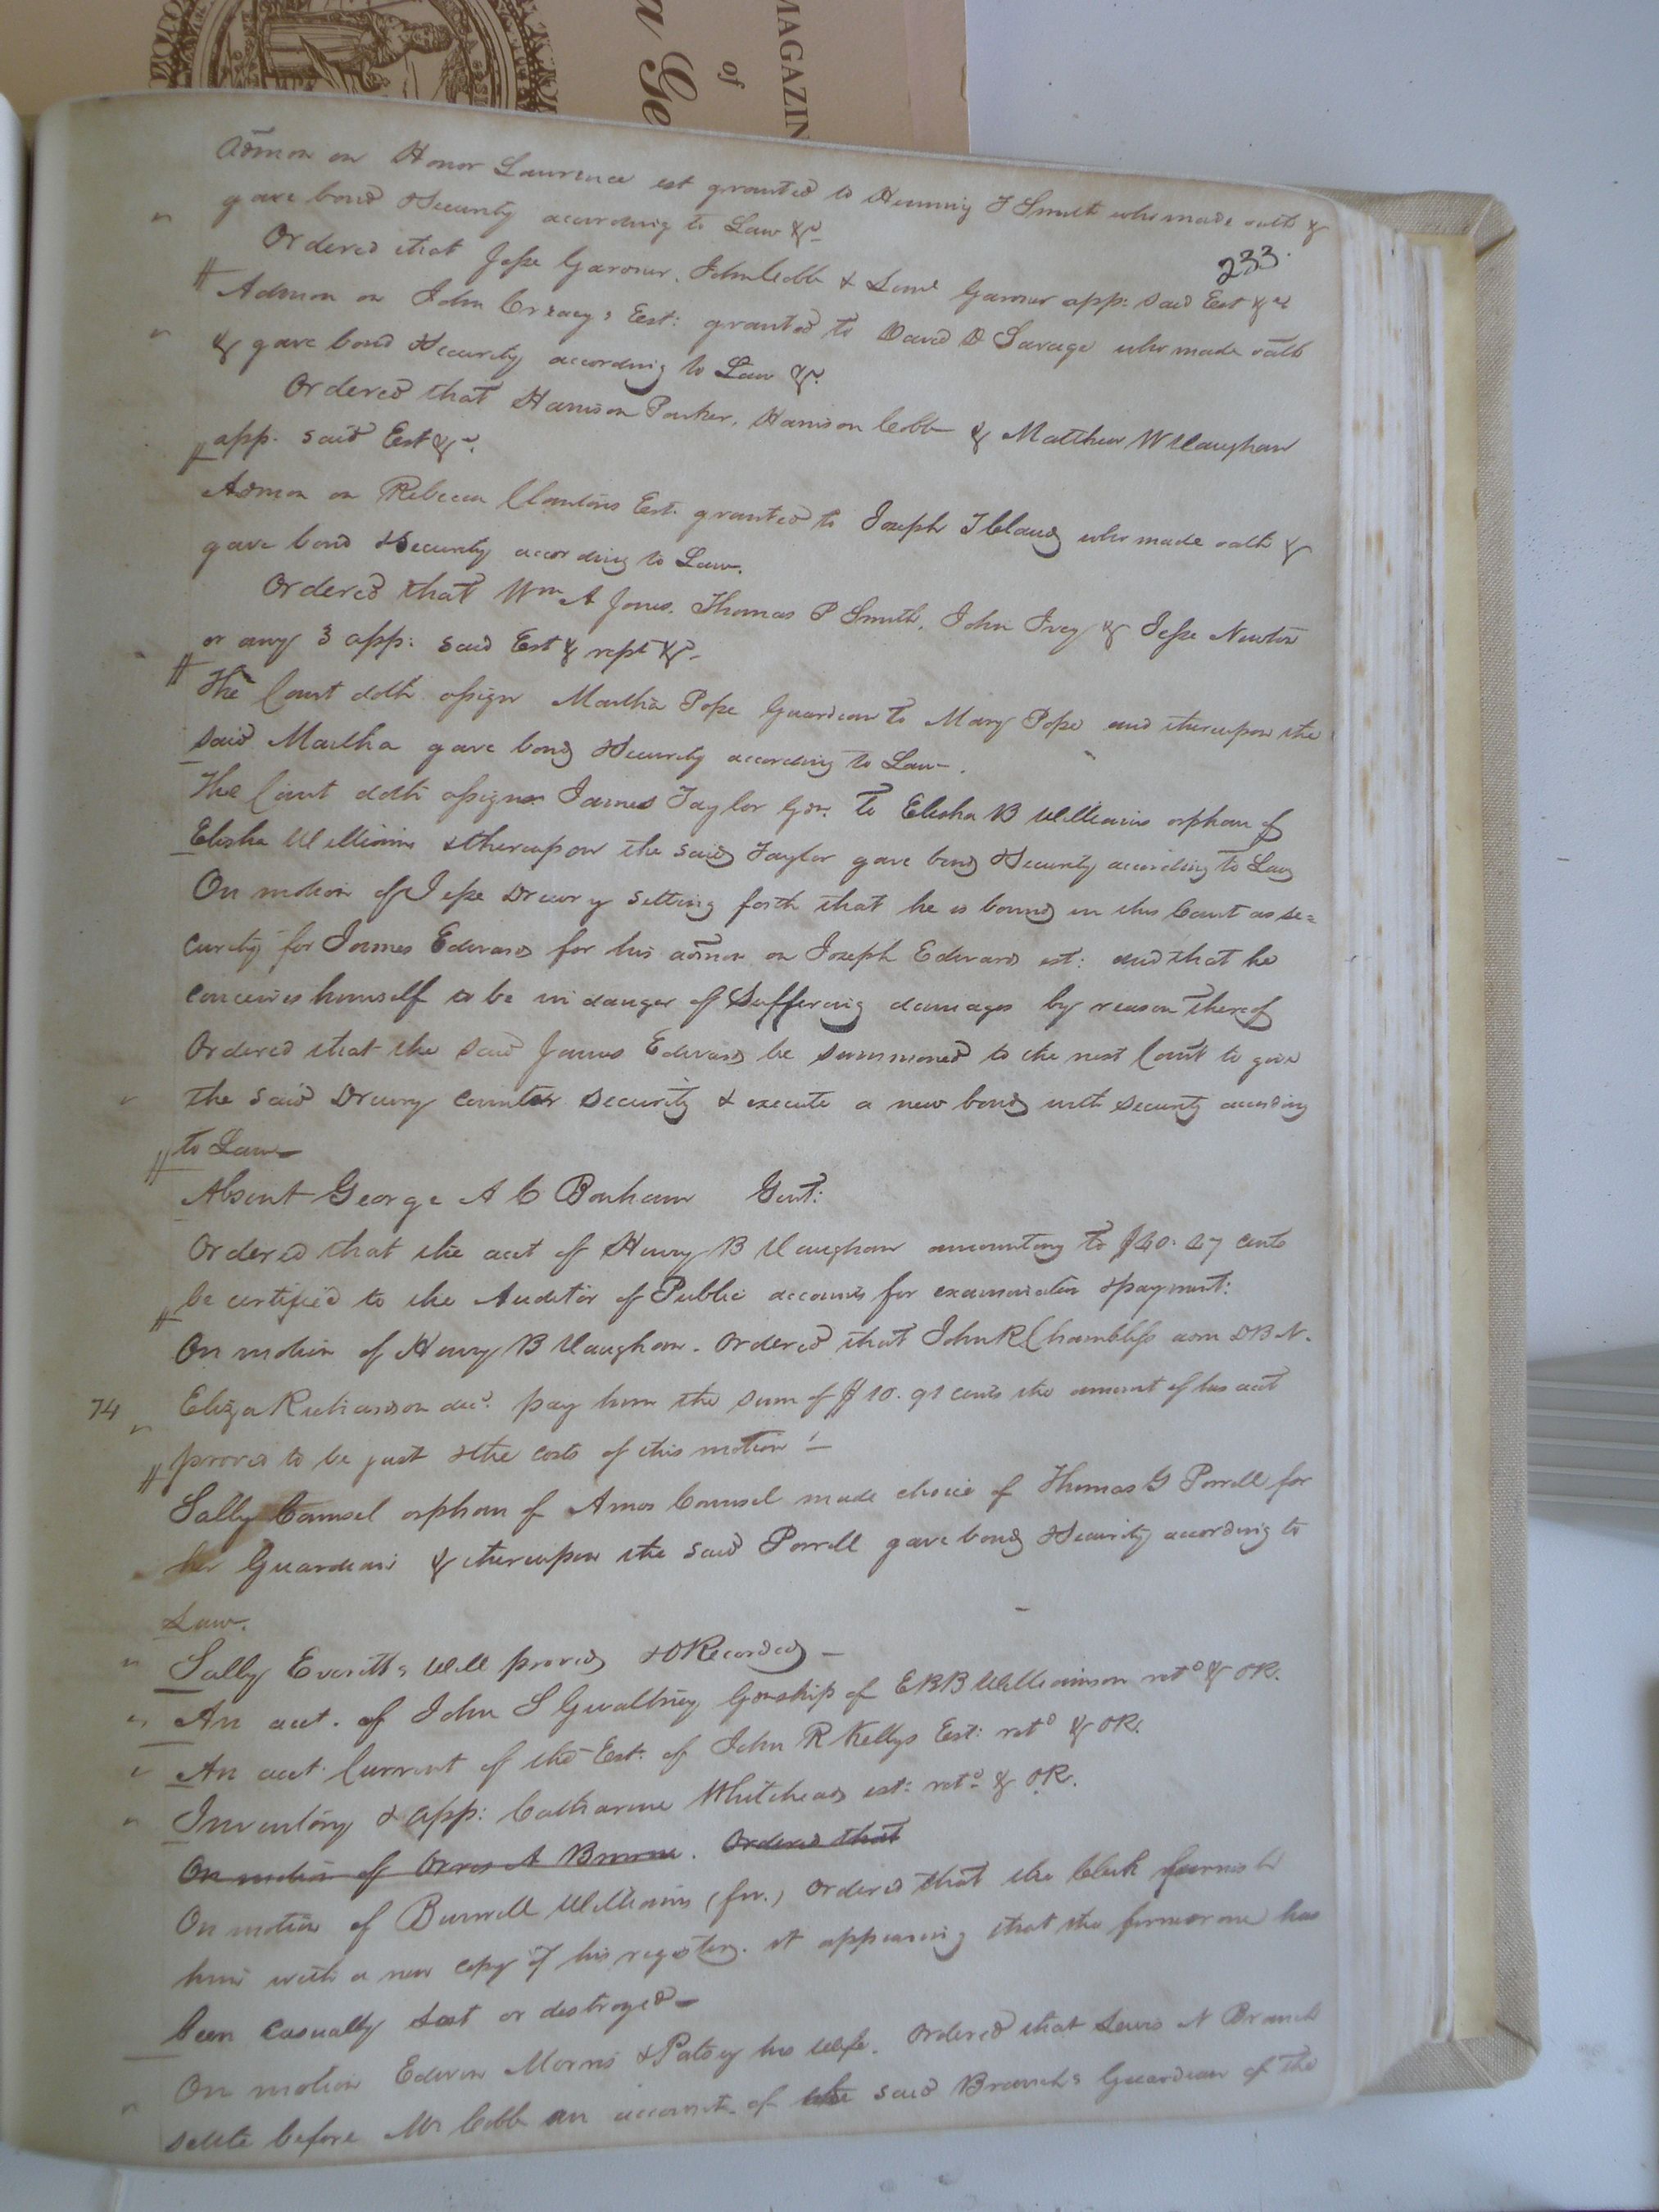 MAGAZIN
of
a Ge
233.
Admon on Honor Lawrence est granted to Henning T Smith who made oath &
gave bond & Security according to Law &c
Ordered that Jesse Gardner, John Cobb & Saml Garner app: said Est &c
Admon on John Est: granted to David D Savage who made oath
& gave bond & Security according to Law &c.
Ordered that Harrison Parker, Harrison Cobb & Matthew W Vaughan
app. said Est &c.
Admon on Rebecca Est. granted to Joseph T Claud who made oath &
gave bond & Security according to Law.
Ordered that Wm A Jones, Thomas P Smith, John Ivey & Jesse Newton
or any 3 app: said Est & rept &c.
The Court doth assign Martha Pope Guardian to Mary Pope and thereupon the
said Martha gave bond & Security according to Law.
The Court doth assign James Taylor Gdn. to Elisha B Williams orphan of
Elisha Williams & thereupon the said Taylor gave bond & Security according to Law
On motion of Jesse Drewry setting forth that he is bound in this Court as se=
curity for James Edwards for his admon on Joseph Edwards est: and that he
conceives himself to be in danger of Suffering damages by reason thereof
Ordered that the said James Edwards be summoned to the next Court to give
the said Drewry counter security & execute a new bond with security according
to Law
Absent George A C Bonham Gent:
Ordered that the acct of Henry B Vaughan amounting to $40. 27 cents
be certified to the Auditor of Public accounts for examination & payment:
On motion of Henry B Vaughan. Ordered that John R Chambliss adm DBN.
74 Eliza Richardson decd. pay him the sum of $10. 91 cents the amount of his acct
proved to be just & the costs of this motion!—
Sally Counsel orphan of Amos Counsel made choice of Thomas G Porrell for
her Guardian & thereupon the said Porrell gave bond & Security according to
Law.
Sally Everitt's Will proved & O Recorded —
An acct. of John S Gwaltney Gdnship of E B B Williamson retd & OR.
An acct. Current of the Est. of John R Kellys Est: retd & OR.
Inventory & app: Catharine Whiteheads est: retd & OR.
On motion of A Browne. Ordered that
On motion of Burwell Williams (fn.) Ordered that the Clerk furnish
him with a new copy of his register. it appearing that the former one has
been casually lost or destroyed —
On motion Edwin Morris & Patsey his wife. Ordered that Lewis N Branch
settle before Mr Cobb an account of the said Branch's Guardian of the